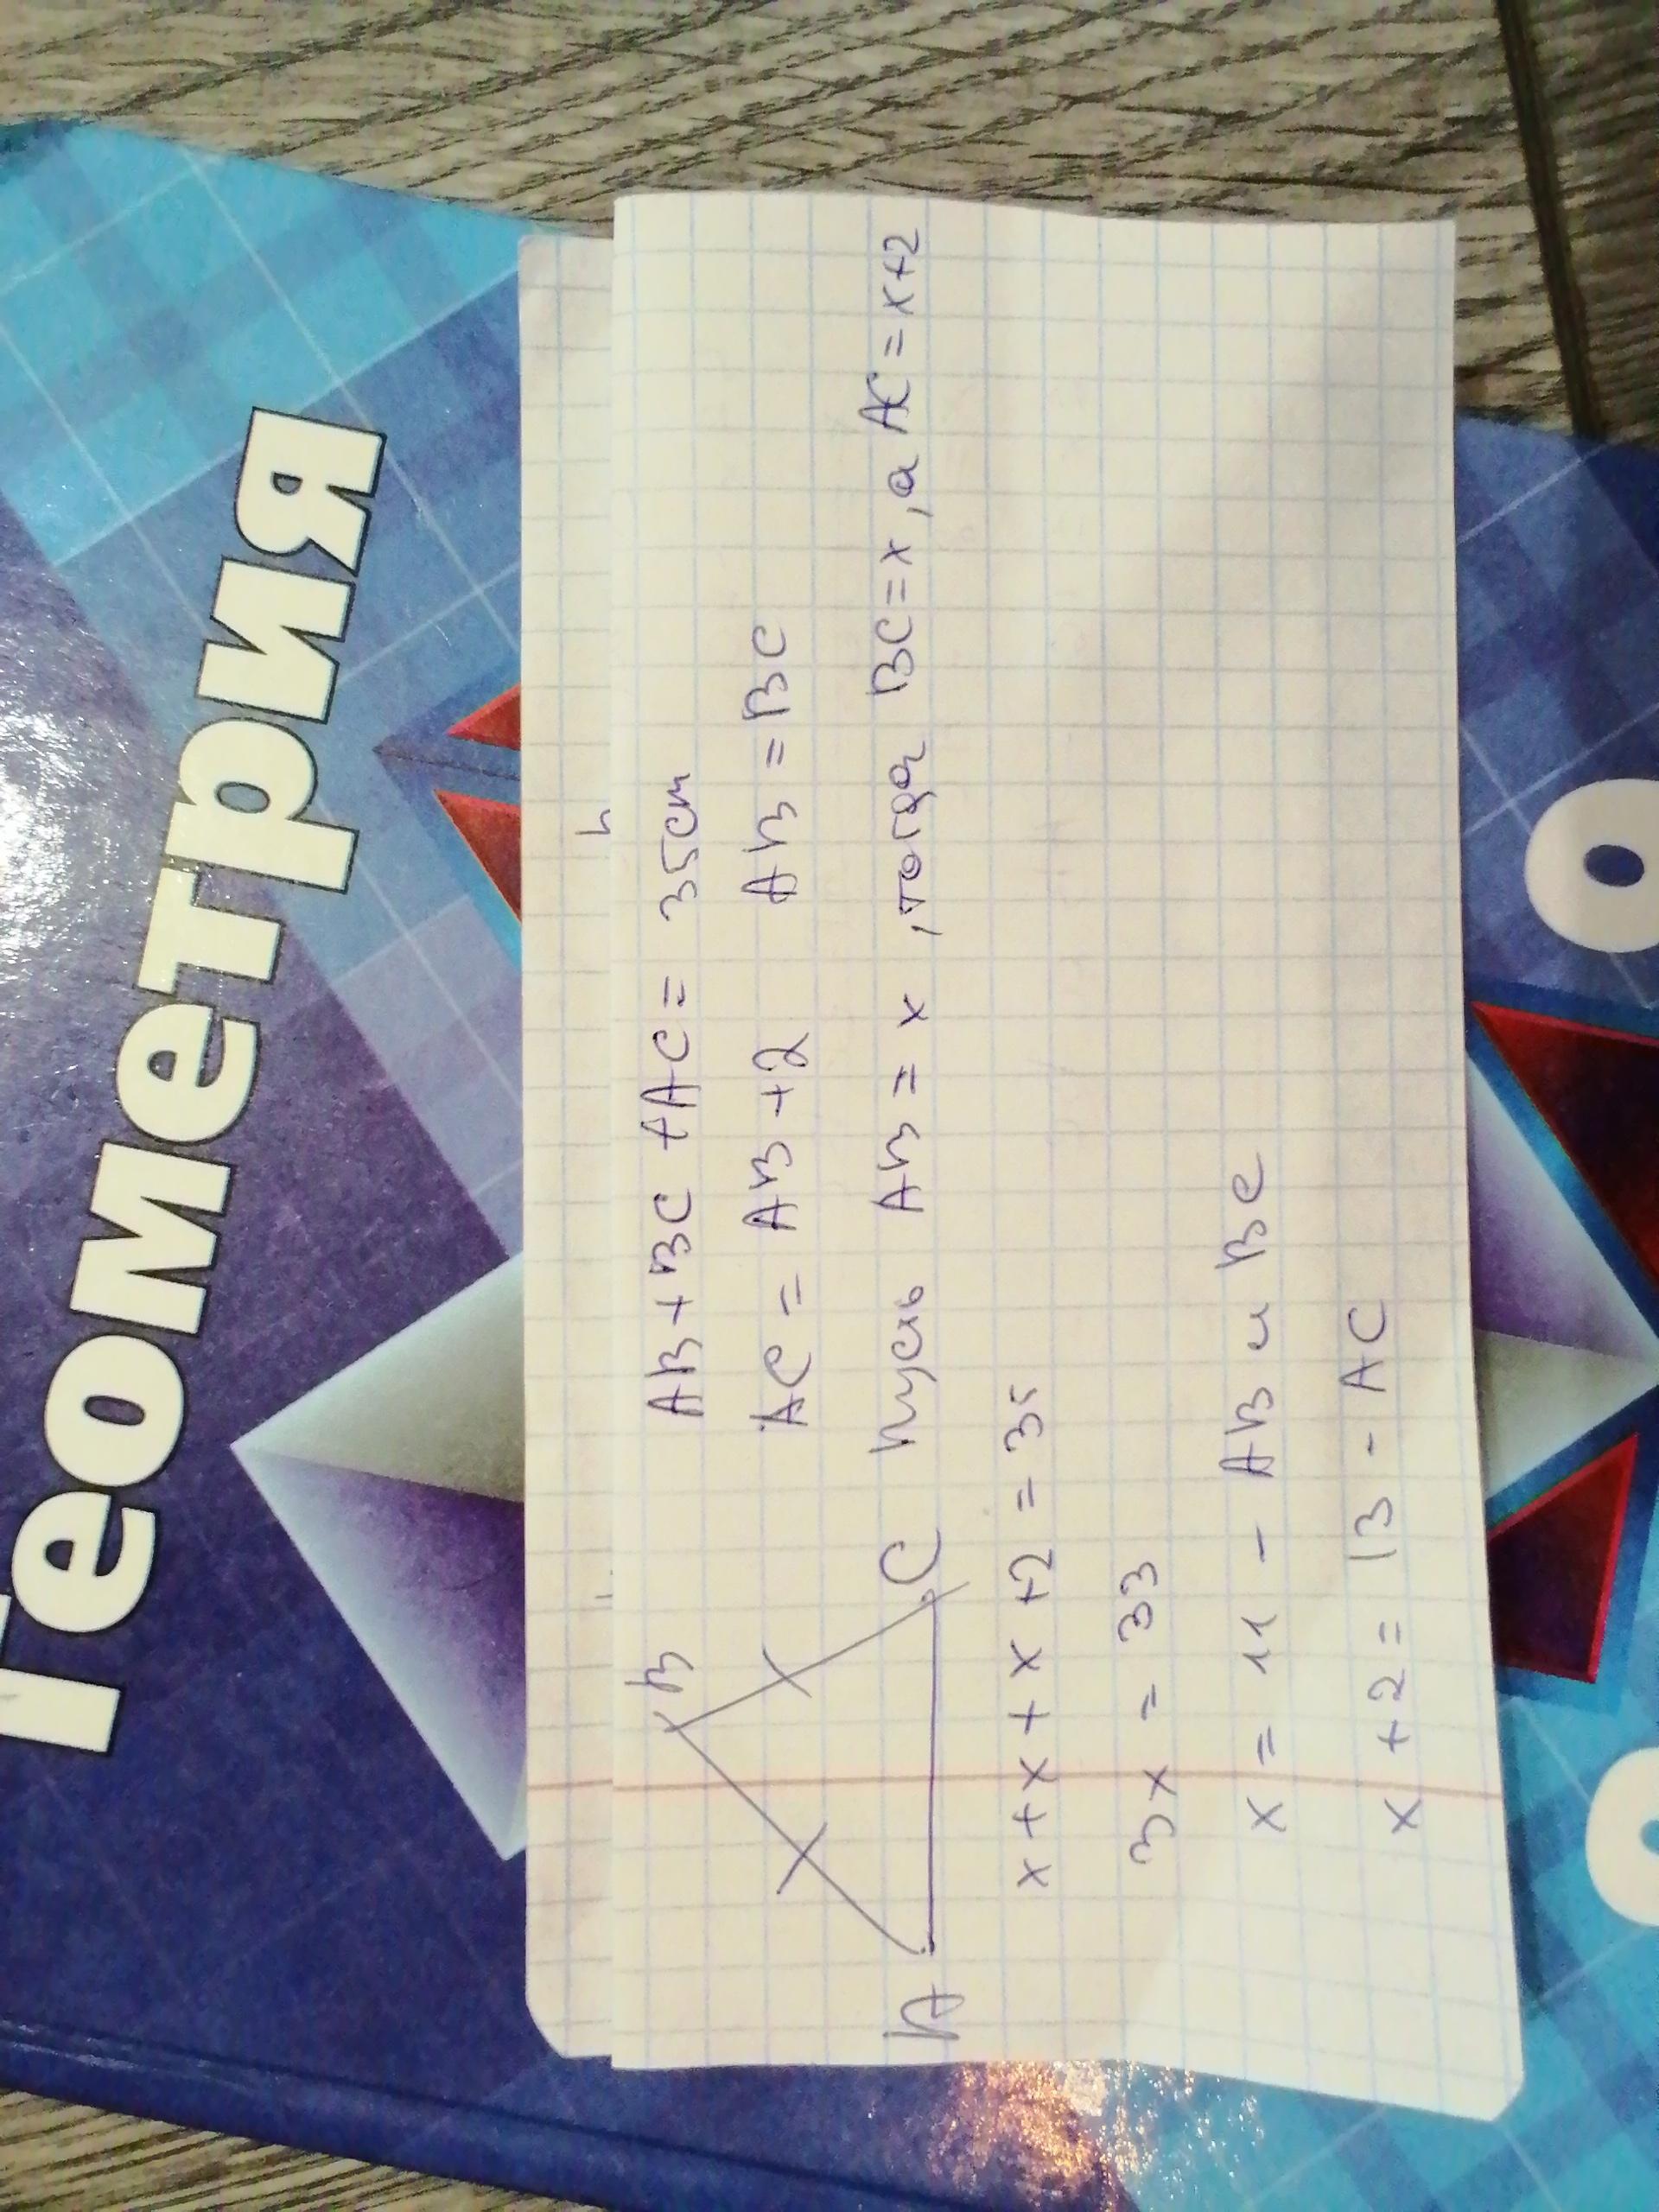 Геометрия
B
AB+BC+AC= 35см
AC = AB+2 AB=BC
A
C
Пусть AB = x, тогда BC=x, а AC=x+2
x+x+x+2=35
3x = 33
x = 11 - AB и BC
x+2= 13 - AC